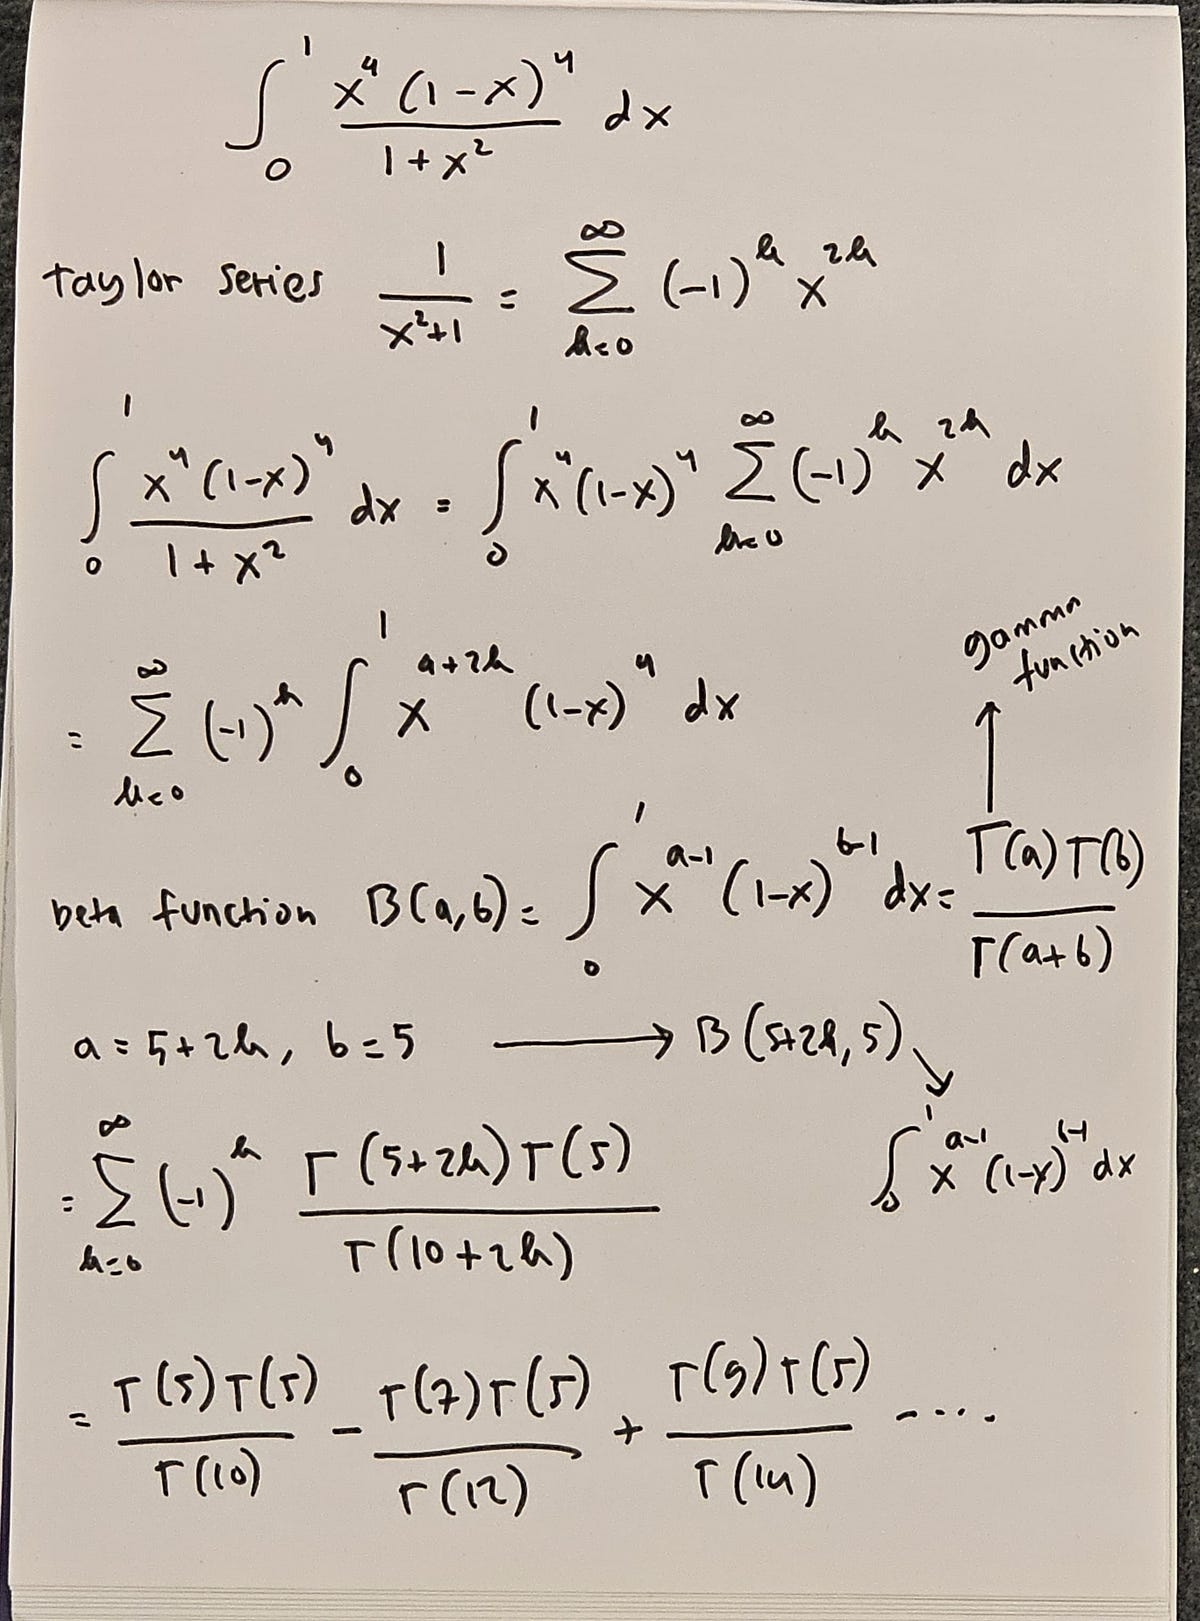 ∫₀¹ x⁴(1-x)⁴ / (1+x²) dx
taylor series 1/(x²+1) = ∑_{k=0}^{∞} (-1)^k x^{2k}
∫₀¹ x⁴(1-x)⁴ / (1+x²) dx = ∫₀¹ x⁴(1-x)⁴ ∑_{k=0}^{∞} (-1)^k x^{2k} dx
= ∑_{k=0}^{∞} (-1)^k ∫₀¹ x^{4+2k} (1-x)⁴ dx
gamma
function
beta function B(a,b) = ∫₀¹ x^{a-1} (1-x)^{b-1} dx = Γ(a)Γ(b) / Γ(a+b)
a = 5+2k, b = 5 → B(5+2k, 5)
∫₀¹ x^{a-1} (1-x)^{b-1} dx
= ∑_{k=0}^{∞} (-1)^k Γ(5+2k)Γ(5) / Γ(10+2k)
= Γ(5)Γ(5) / Γ(10) - Γ(7)Γ(5) / Γ(12) + Γ(9)Γ(5) / Γ(14) -....